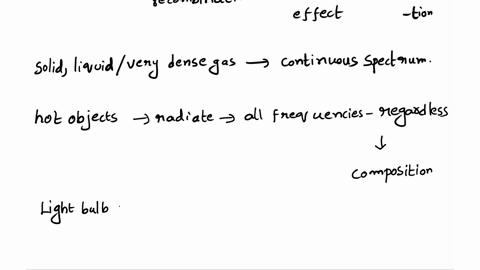 effect -tion
solid, liquid/very dense gas → continuous spectrum.
hot objects → radiate → all frequencies - regardless
↓
composition
Light bulb